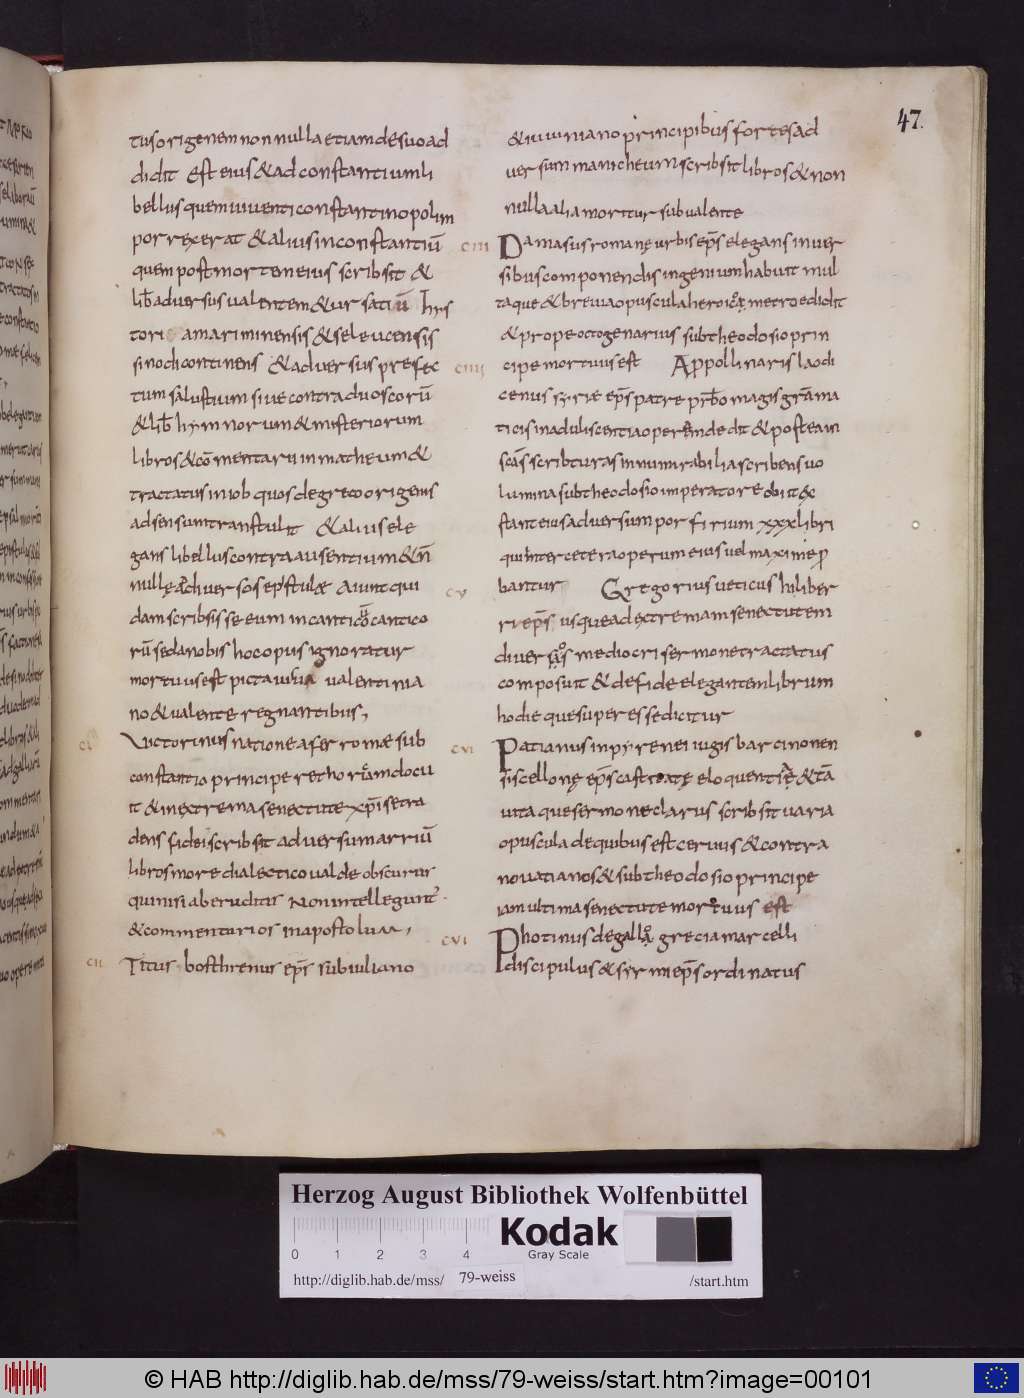 47.
tus origenem non nulla etiam de suo ad
didit Est eius & ad constantium li
bellus quem uiuenti constantinopolim
porrexerat & alius in constantiū
quem post mortem eius scribsit &
lib̄ aduersus ualentem & ursatiū hys
tori amariminensis & seleucensis
sinodi continens & aduersus prefec
tum salustium siue contra duoscorū
& lib̄ hymnorum & misteriorum
libros & cōmentarii in matheum &
tractatus in iob quos de greco origenis
ad sensum transtulit & alius ele
gans libellus contra ausentium & n̄
nullę aduersos epistulæ Aiunt qui
dam scribsisse eum in cantico cantico
rū sed a nobis hoc opus ignoratur
mortuus est pictauiua ualentinia
no & ualente regnantibus,
ci Victorinus natione afer romæ sub
constantio principe rethoricam docu
it & in extrema senectute xpi se tra
dens fidei scribsit aduersum arriū
libros more dialectico ualde obscurus
qui nisi ab eruditis Non intellegunt'.
& commentarios in apostolum,
cii Titus bosthrenus ep̄s sub iuliano
& iuuiniano principibus fortes ad
uersum manicheum scribsit libros & non
nulla alia moritur sub ualente
ciii Damasus romanę urbis ep̄s elegans in uer
sibus componendis ingenium habuit mul
taque & breuia opuscula heroico metro edidit
& prope octogenarius sub theodosio prin
ciiii cipe mortuus est Appollinaris laodi
cenus syriæ ep̄s patre prb̄o magis gramma
ticis in aduliscentia operam dedit & postea in
scas scribturas innumirabilia scribens uo
lumina sub theodosio imperatore obiit ex
stant eius aduersum porfirium xxx libri
qui inter cetera operum eius uel maxime p
cv bantur Gregorius ueticus hiliber
ri ep̄s usque ad extremam senectutem
diuersos mediocri sermone tractatus
composuit & de fide elegantem librum
hodieque superesse dicitur
cvi Patianus in pyrenei iugis barcinonen
sis cellonę ep̄s castitatę eloquentię & tā
uita que sermone clarus scribsit uaria
opuscula de quibus est ceruus & contra
nouatianos & sub theodosio principe
iam ultima senectute mortuus est
cvi Photinus de gallogrecia marcelli
discipulus & syrmi ep̄s ordinatus
Herzog August Bibliothek Wolfenbüttel
0 1 2 3 4
Kodak
Gray Scale
http://diglib.hab.de/mss/ 79-weiss /start.htm
© HAB http://diglib.hab.de/mss/79-weiss/start.htm?image=00101